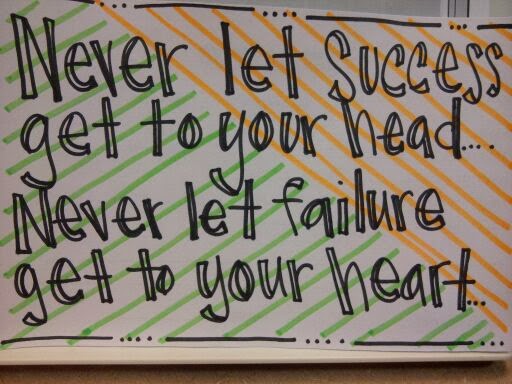 Never let success
get to your head....
Never let failure
get to your heart...